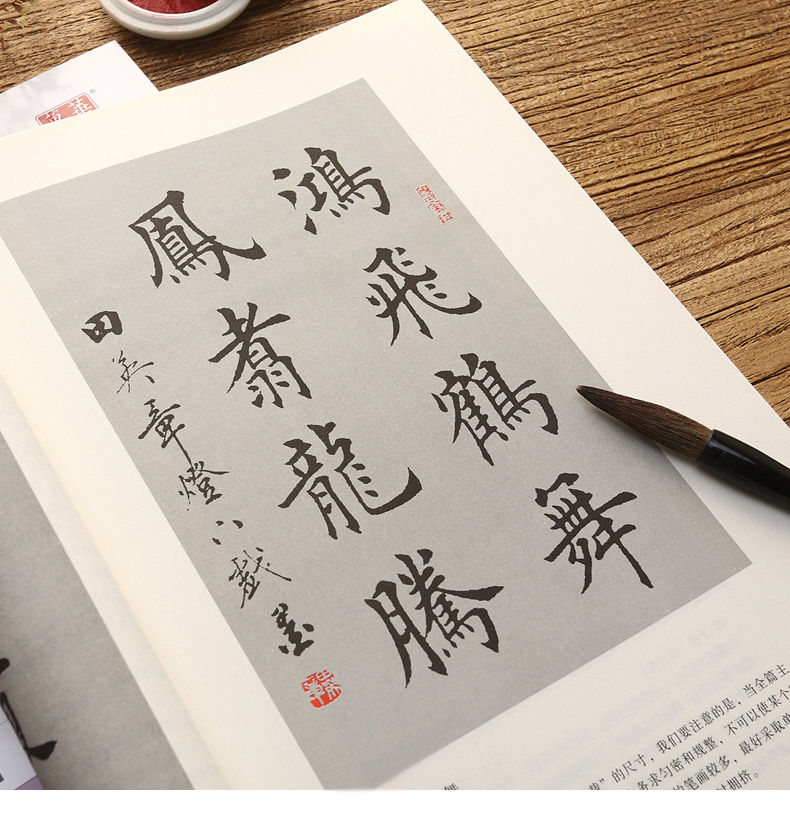 鴻飛鶴舞
鳳翥龍騰
田英章燈下戲墨
的尺寸，我们要注意的是，当全篇主
务求匀密和规整，不可以使某个
的笔画较多，最好采取单
过拥挤。